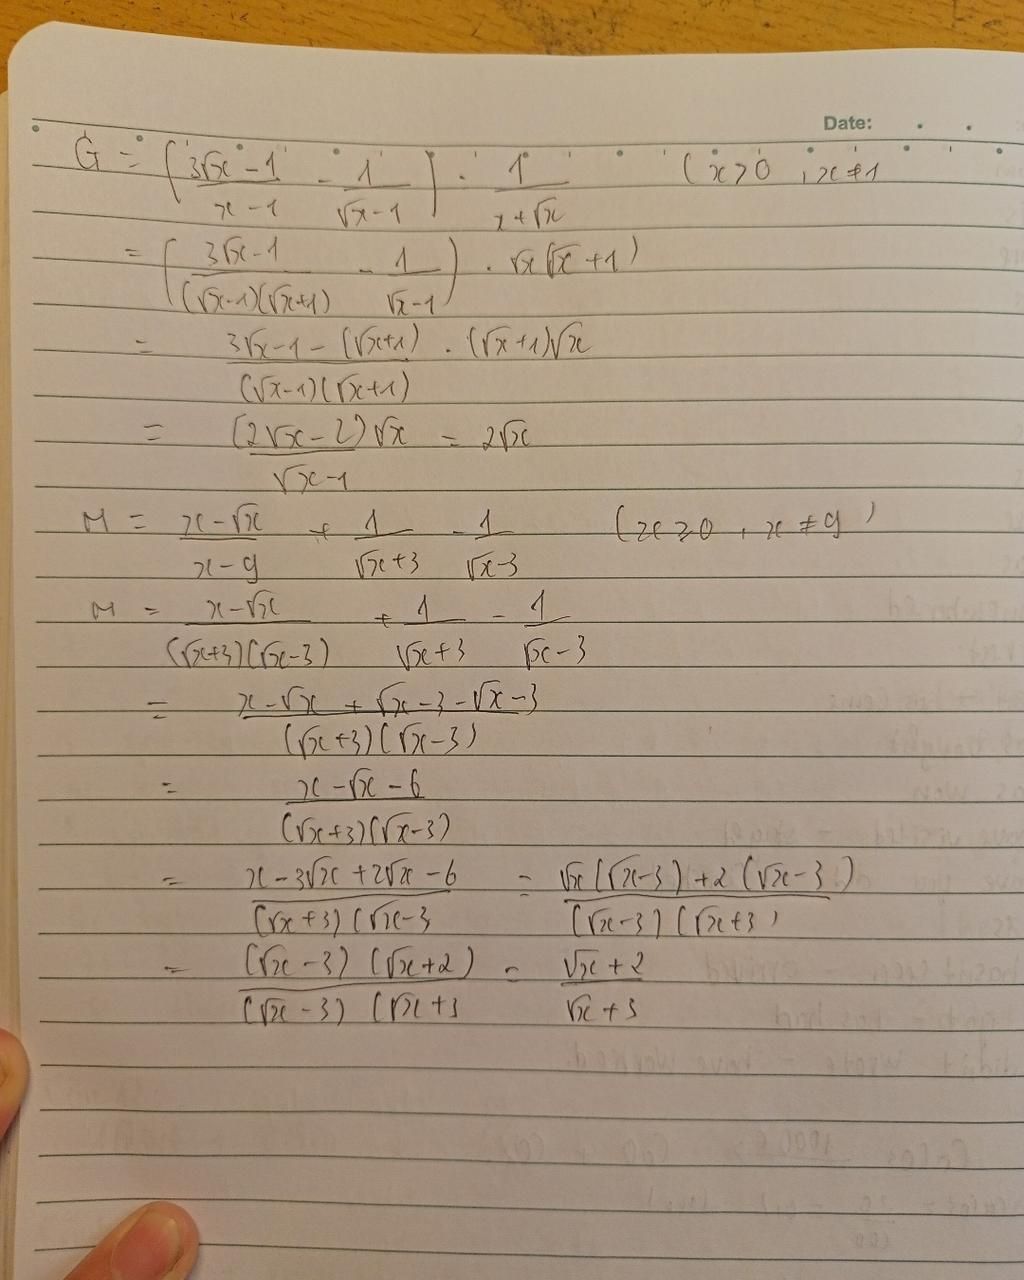 Date:
G = (3√x - 1 / x - 1 - 1 / √x - 1) . 1 / x + √x (x > 0 , x ≠ 1
= (3√x - 1 / (√x - 1)(√x + 1) - 1 / √x - 1) . √x(√x + 1)
= 3√x - 1 - (√x + 1) / (√x - 1)(√x + 1) . (√x + 1)√x
= (2√x - 2)√x / √x - 1 = 2√x
M = x - √x / x - 9 + 1 / √x + 3 - 1 / √x - 3 (x ≥ 0 , x ≠ 9)
M = x - √x / (√x + 3)(√x - 3) + 1 / √x + 3 - 1 / √x - 3
= x - √x + √x - 3 - √x - 3 / (√x + 3)(√x - 3)
= x - √x - 6 / (√x + 3)(√x - 3)
= x - 3√x + 2√x - 6 / (√x + 3)(√x - 3 = √x(√x - 3) + 2(√x - 3) / (√x - 3)(√x + 3)
= (√x - 3)(√x + 2) / (√x - 3)(√x + 3 = √x + 2 / √x + 3